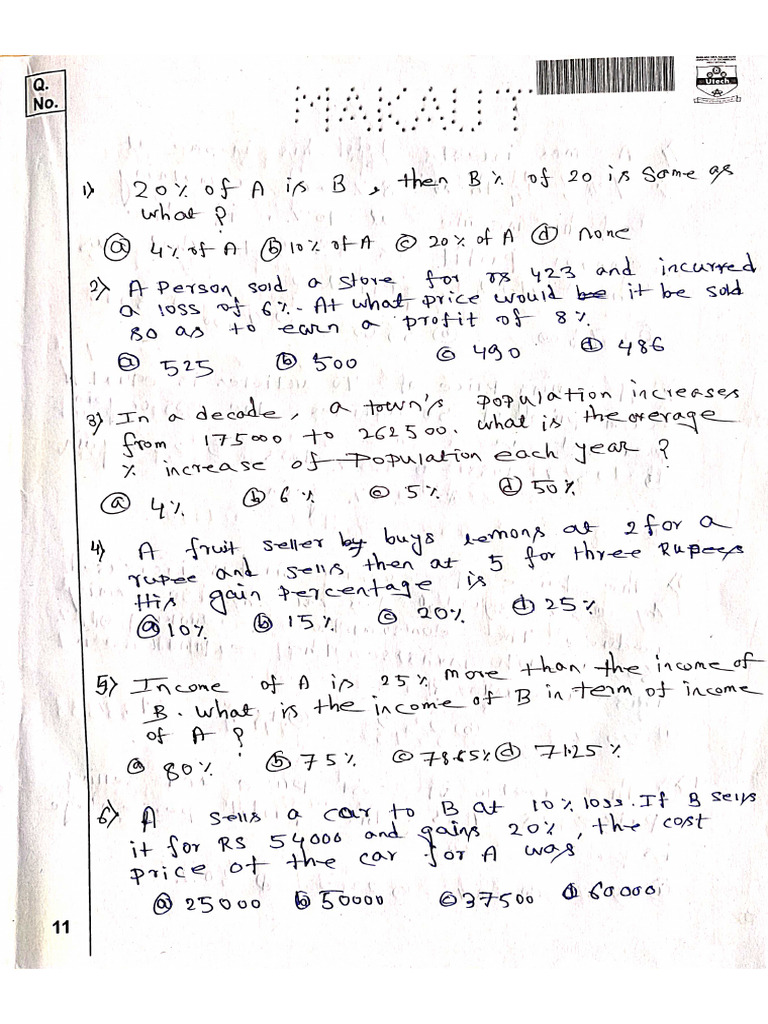 Q.
No.
MAKAUT
Utech
1) 20% of A is B, then B% of 20 is same as
what ?
(a) 4% of A (b) 10% of A (c) 20% of A (d) none
2) A person sold a store for rs 423 and incurred
a loss of 6%. At what price would be it be sold
so as to earn a profit of 8%
(a) 525 (b) 500 (c) 490 (d) 486
3) In a decade, a town's population increases
from 175000 to 262500. what is the average
% increase of Population each year ?
(a) 4% (b) 6% (c) 5% (d) 50%
4) A fruit seller by buys lemons at 2 for a
rupee and sells then at 5 for three Rupees
His gain percentage is
(a) 10% (b) 15% (c) 20% (d) 25%
5) Income of A is 25% more than the income of
B. what is the income of B in term of income
of A ?
(a) 80% (b) 75% (c) 78.65% (d) 71.25%
6) A sells a car to B at 10% loss. If B sells
it for RS 54000 and gains 20%, the cost
price of the car for A was
(a) 25000 (b) 50000 (c) 37500 (d) 60000
11